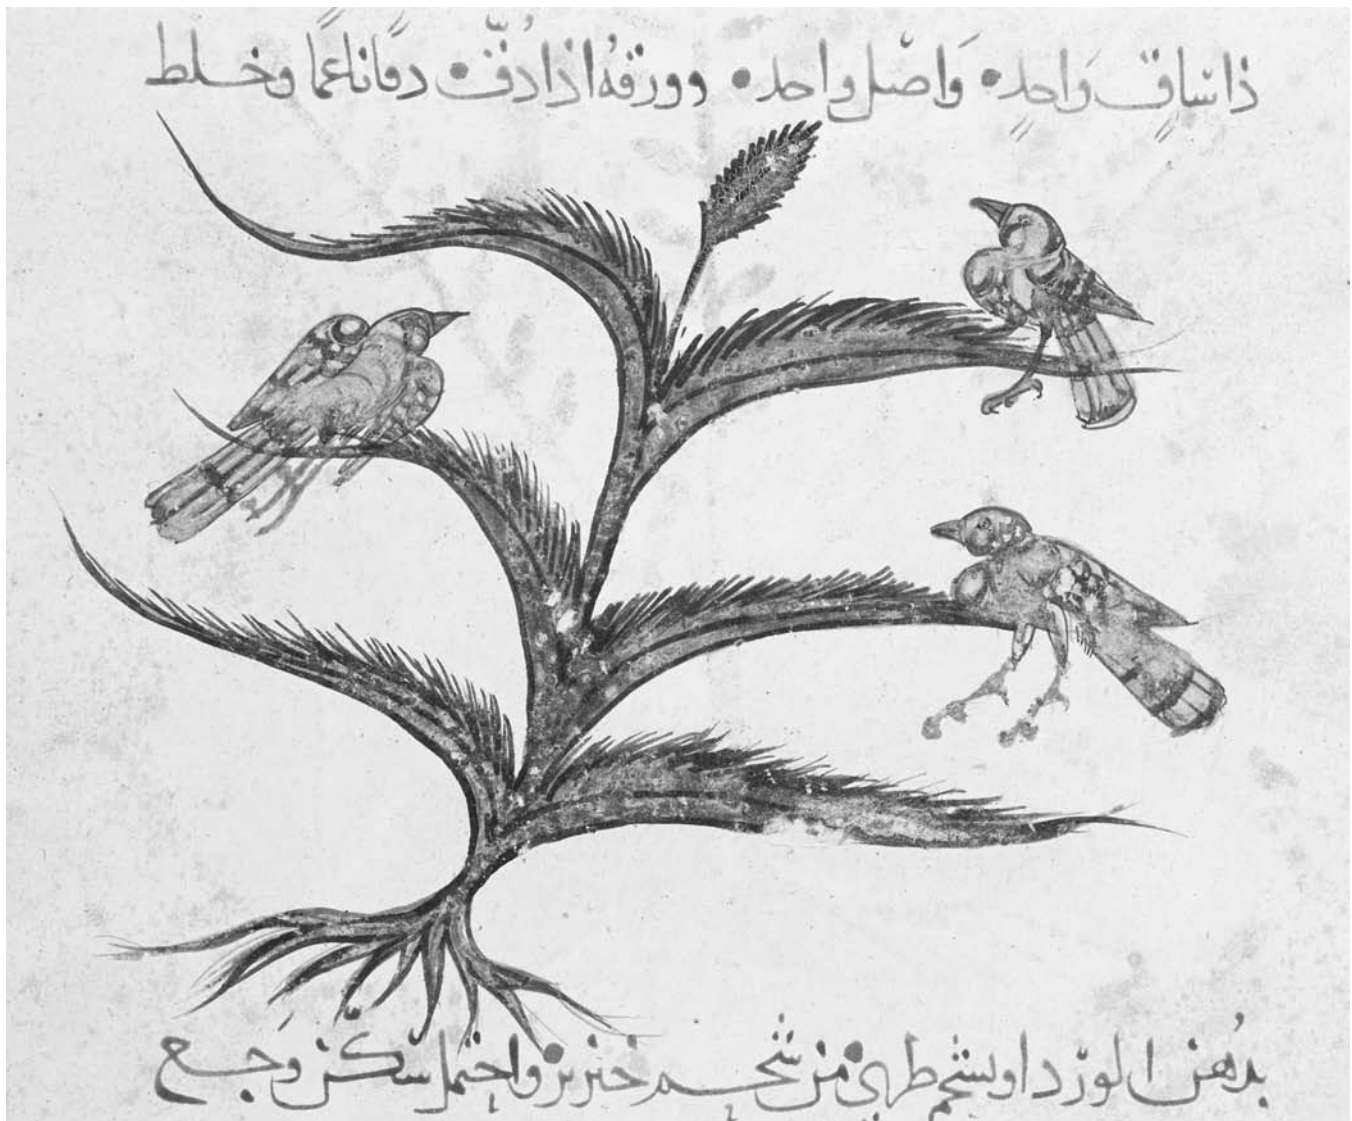 ذا ساق واحد • واصل واحد • وورقه اذا دق • دقا ناعما وخلط
بدهن الورد او بشحم طري من شحم خنزير واحتمل سكن وجع